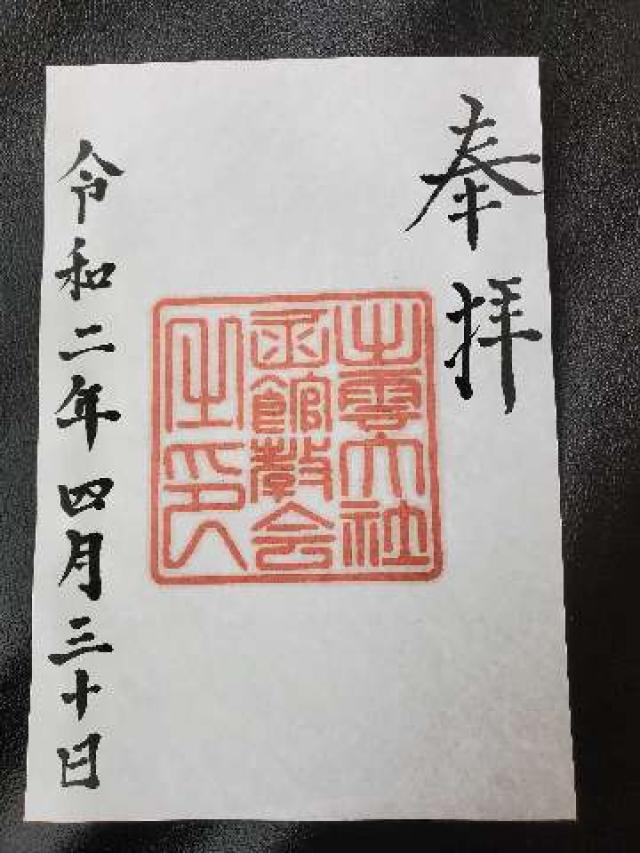 奉拝
出雲大社
函館教会
之印
令和二年四月三十日